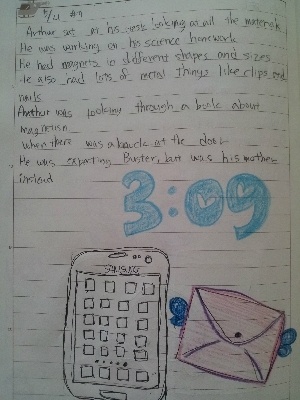 5/4 #7
Arthur sat in his desk looking at all the materials
He was working on his science homework
He had magnets in different shapes and sizes
He also had lots of metal things like clips and
nails
Arthur was looking through a book about
magnetism
when there was a knock at the door
He was expecting Buster, but was his mother
instead
3:09
SAMSUNG